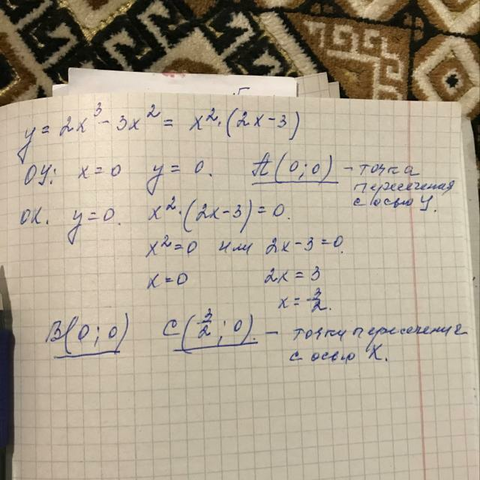 y = 2x³ - 3x² = x²·(2x-3)
OY: x=0 y=0. A(0;0) - точка пересечения с осью y.
OX. y=0. x²·(2x-3)=0.
x²=0 или 2x-3=0.
x=0 2x=3
x=3/2.
B(0;0) C(3/2;0). - точки пересечения с осью X.